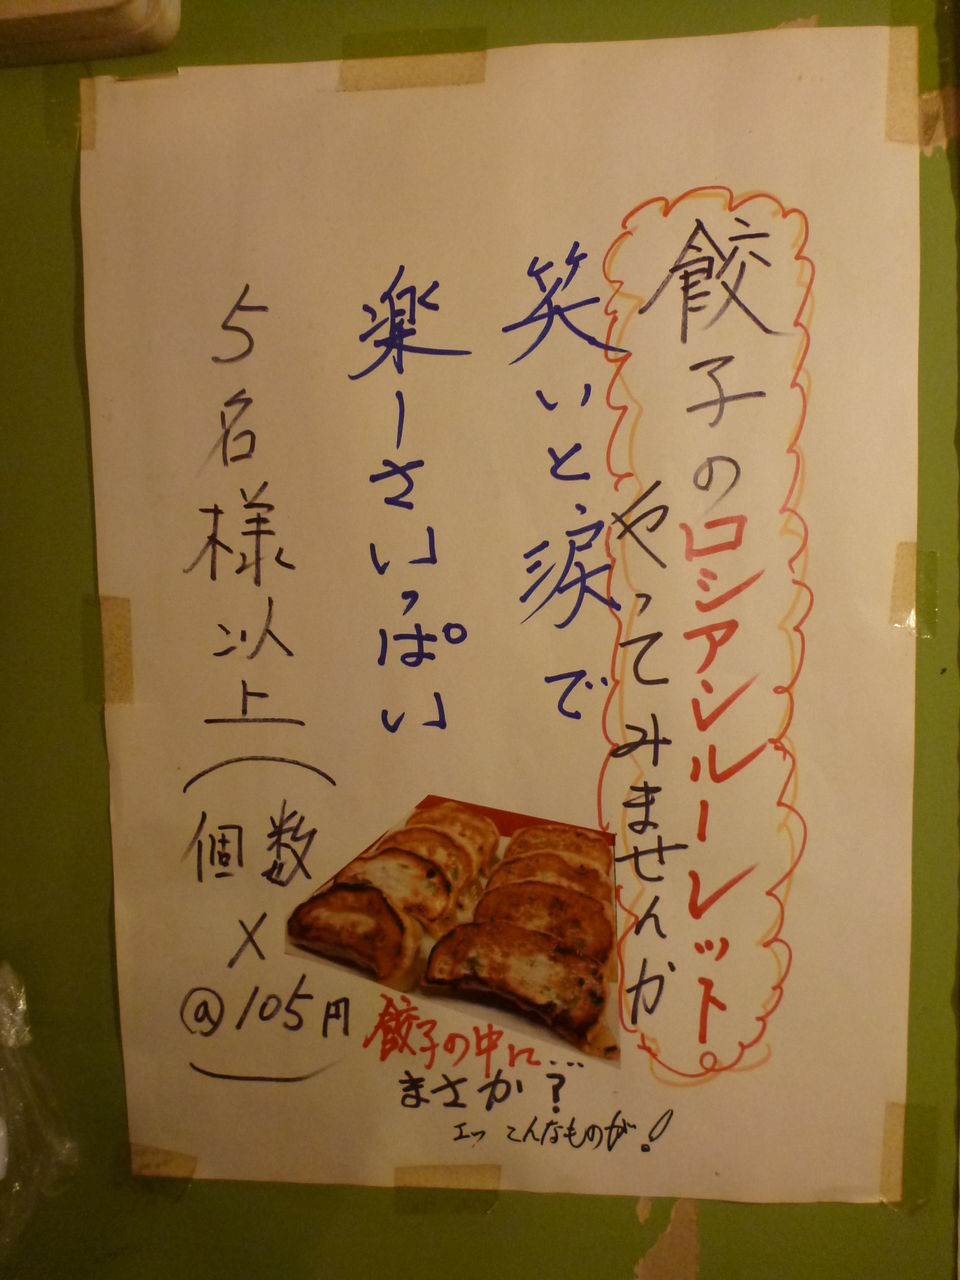 餃子のロシアンルーレット
やってみませんか
笑いと涙で
楽ーさいっぱい
5名様以上
(個数
×
@105円)
餃子の中に…
まさか?
エッ こんなものが!